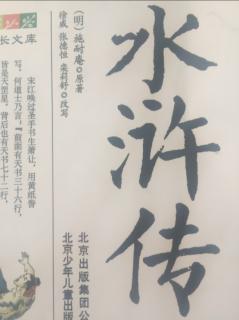 水浒传
（明）施耐庵·原著
徐威 张德恒 栾莉舒·改写
北京出版集团公
北京少年儿童出版
长文库
宋江唤过圣手书生萧让，用黄纸誊
写。何道士乃言：“前面有天书三十六行，
皆是天罡星，背后也有天书七十二行，